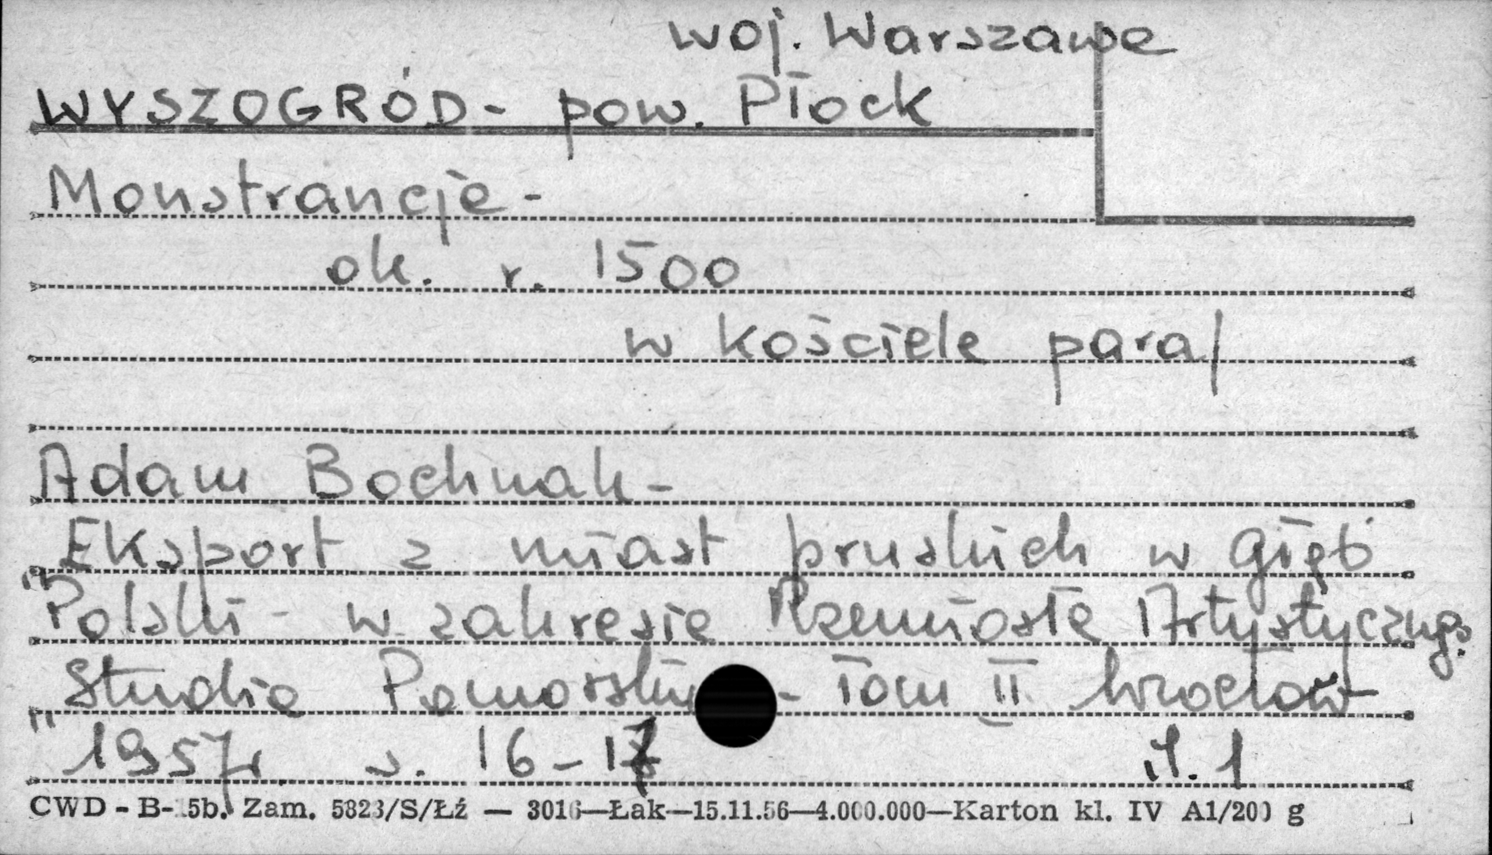 woj. Warszawa
WYSZOGRÓD - pow. Płock
Monstrancje -
ok. r. 1500
w kościele paraf
Adam Bochnak -
Eksport z miast pruskich w głąb
"Polski - w zakresie Rzemiosła Artystyczneg.
Studia Pomorskie - Tom II Wrocław
" 1957 r. s. 16-17 il. 1
CWD - B- 5b. Zam. 5823/S/Łź — 3016—Łak—15.11.56—4.000.000—Karton kl. IV A1/200 g